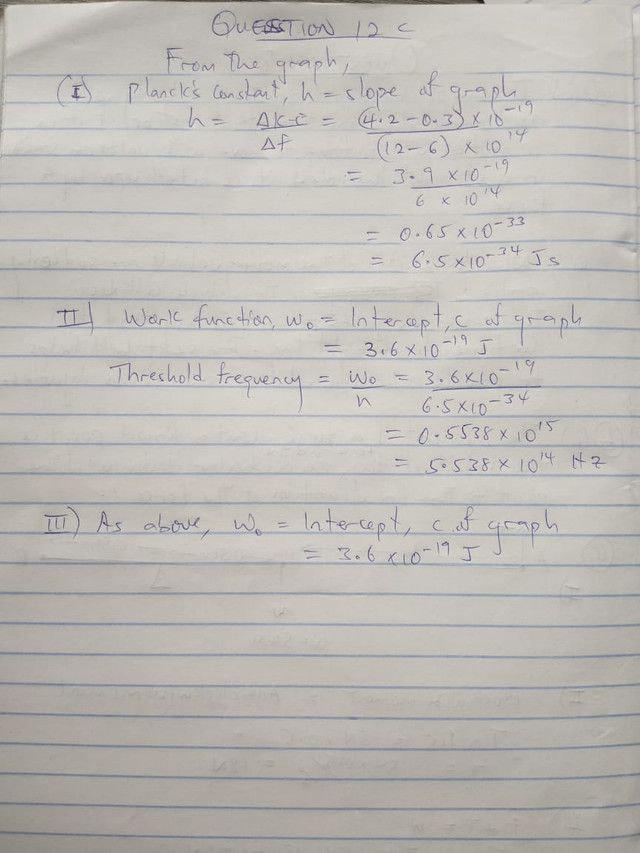 QUESSTION 12 c
From the graph,
(I) Planck's constant, h = slope of graph
h = ΔK-E/Δf = (4.2 - 0.3) × 10⁻¹⁹/(12 - 6) × 10¹⁴
= 3.9 × 10⁻¹⁹/6 × 10¹⁴
= 0.65 × 10⁻³³
= 6.5 × 10⁻³⁴ Js
II) Work function, w₀ = Intercept, c of graph
= 3.6 × 10⁻¹⁹ J
Threshold frequency = w₀/h = 3.6 × 10⁻¹⁹/6.5 × 10⁻³⁴
= 0.5538 × 10¹⁵
= 5.538 × 10¹⁴ HZ
III) As above, w₀ = Intercept, c of graph
= 3.6 × 10⁻¹⁹ J